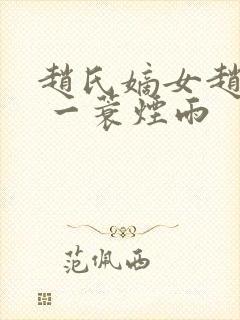 趙氏嫡女趙
一蓑煙雨
范佩西